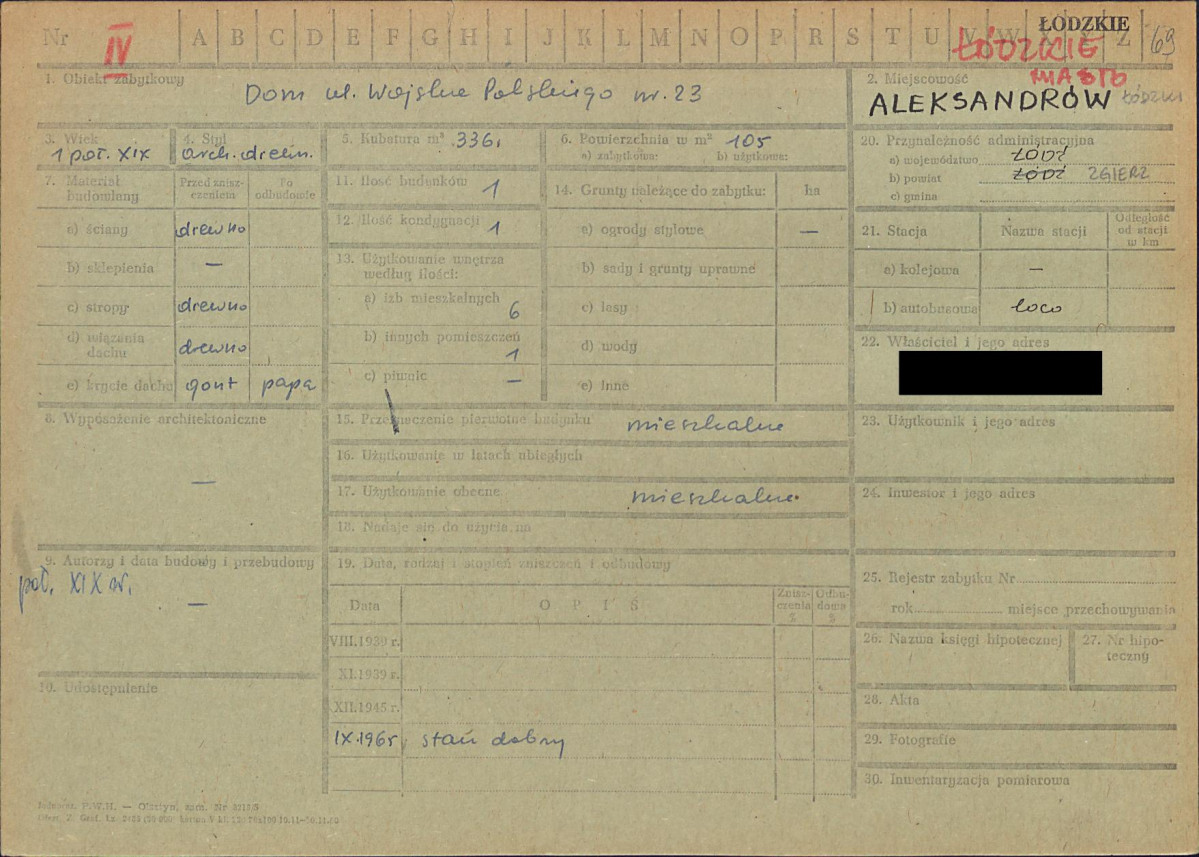 ŁÓDZKIE
Nr IV A B C D E F G H I J K L M N O P R S T U V W X Y Z 69
ŁÓDZKIE
MIASTO
1. Obiekt zabytkowy
Dom ul. Wojska Polskiego nr. 23
2. Miejscowość
ALEKSANDRÓW ŁÓDZKI
3. Wiek
1 poł. XIX
4. Styl
arch. drewn.
5. Kubatura m³ 336,
6. Powierzchnia w m² 105
a) zabytkowa: b) użytkowa:
20. Przynależność administracyjna
a) województwo ŁÓDŹ
b) powiat ŁÓDŹ ZGIERZ
c) gmina
7. Materiał budowlany
Przed znisz-
czeniem
Po
odbudowie
a) ściany drewno
b) sklepienia —
c) stropy drewno
d) wiązania dachu drewno
e) krycie dachu gont papa
11. Ilość budynków 1
12. Ilość kondygnacji 1
13. Użytkowanie wnętrza
według ilości:
a) izb mieszkalnych 6
b) innych pomieszczeń 1
c) piwnic —
14. Grunty należące do zabytku: ha
a) ogrody stylowe —
b) sady i grunty uprawne
c) lasy
d) wody
e) inne
21. Stacja Nazwa stacji
Odległość
od stacji
w km
a) kolejowa —
b) autobusowa loco
22. Właściciel i jego adres
8. Wyposażenie architektoniczne
—
15. Przeznaczenie pierwotne budynku mieszkalne
16. Użytkowanie w latach ubiegłych
17. Użytkowanie obecne mieszkalne.
18. Nadaje się do użycia na
23. Użytkownik i jego adres
24. Inwestor i jego adres
9. Autorzy i data budowy i przebudowy
poł. XIX w.
—
10. Udostępnienie
19. Data, rodzaj i stopień zniszczeń i odbudowy
Data OPIS
Znisz-
czenia
%
Odbu-
dowa
%
VIII.1939 r.
XI.1939 r.
XII.1945 r.
IX.1965 stan dobry
25. Rejestr zabytku Nr
rok miejsce przechowywania
26. Nazwa księgi hipotecznej
27. Nr hipo-
teczny
28. Akta
29. Fotografie
30. Inwentaryzacja pomiarowa
P.W.H. — Olsztyn, zam. Nr